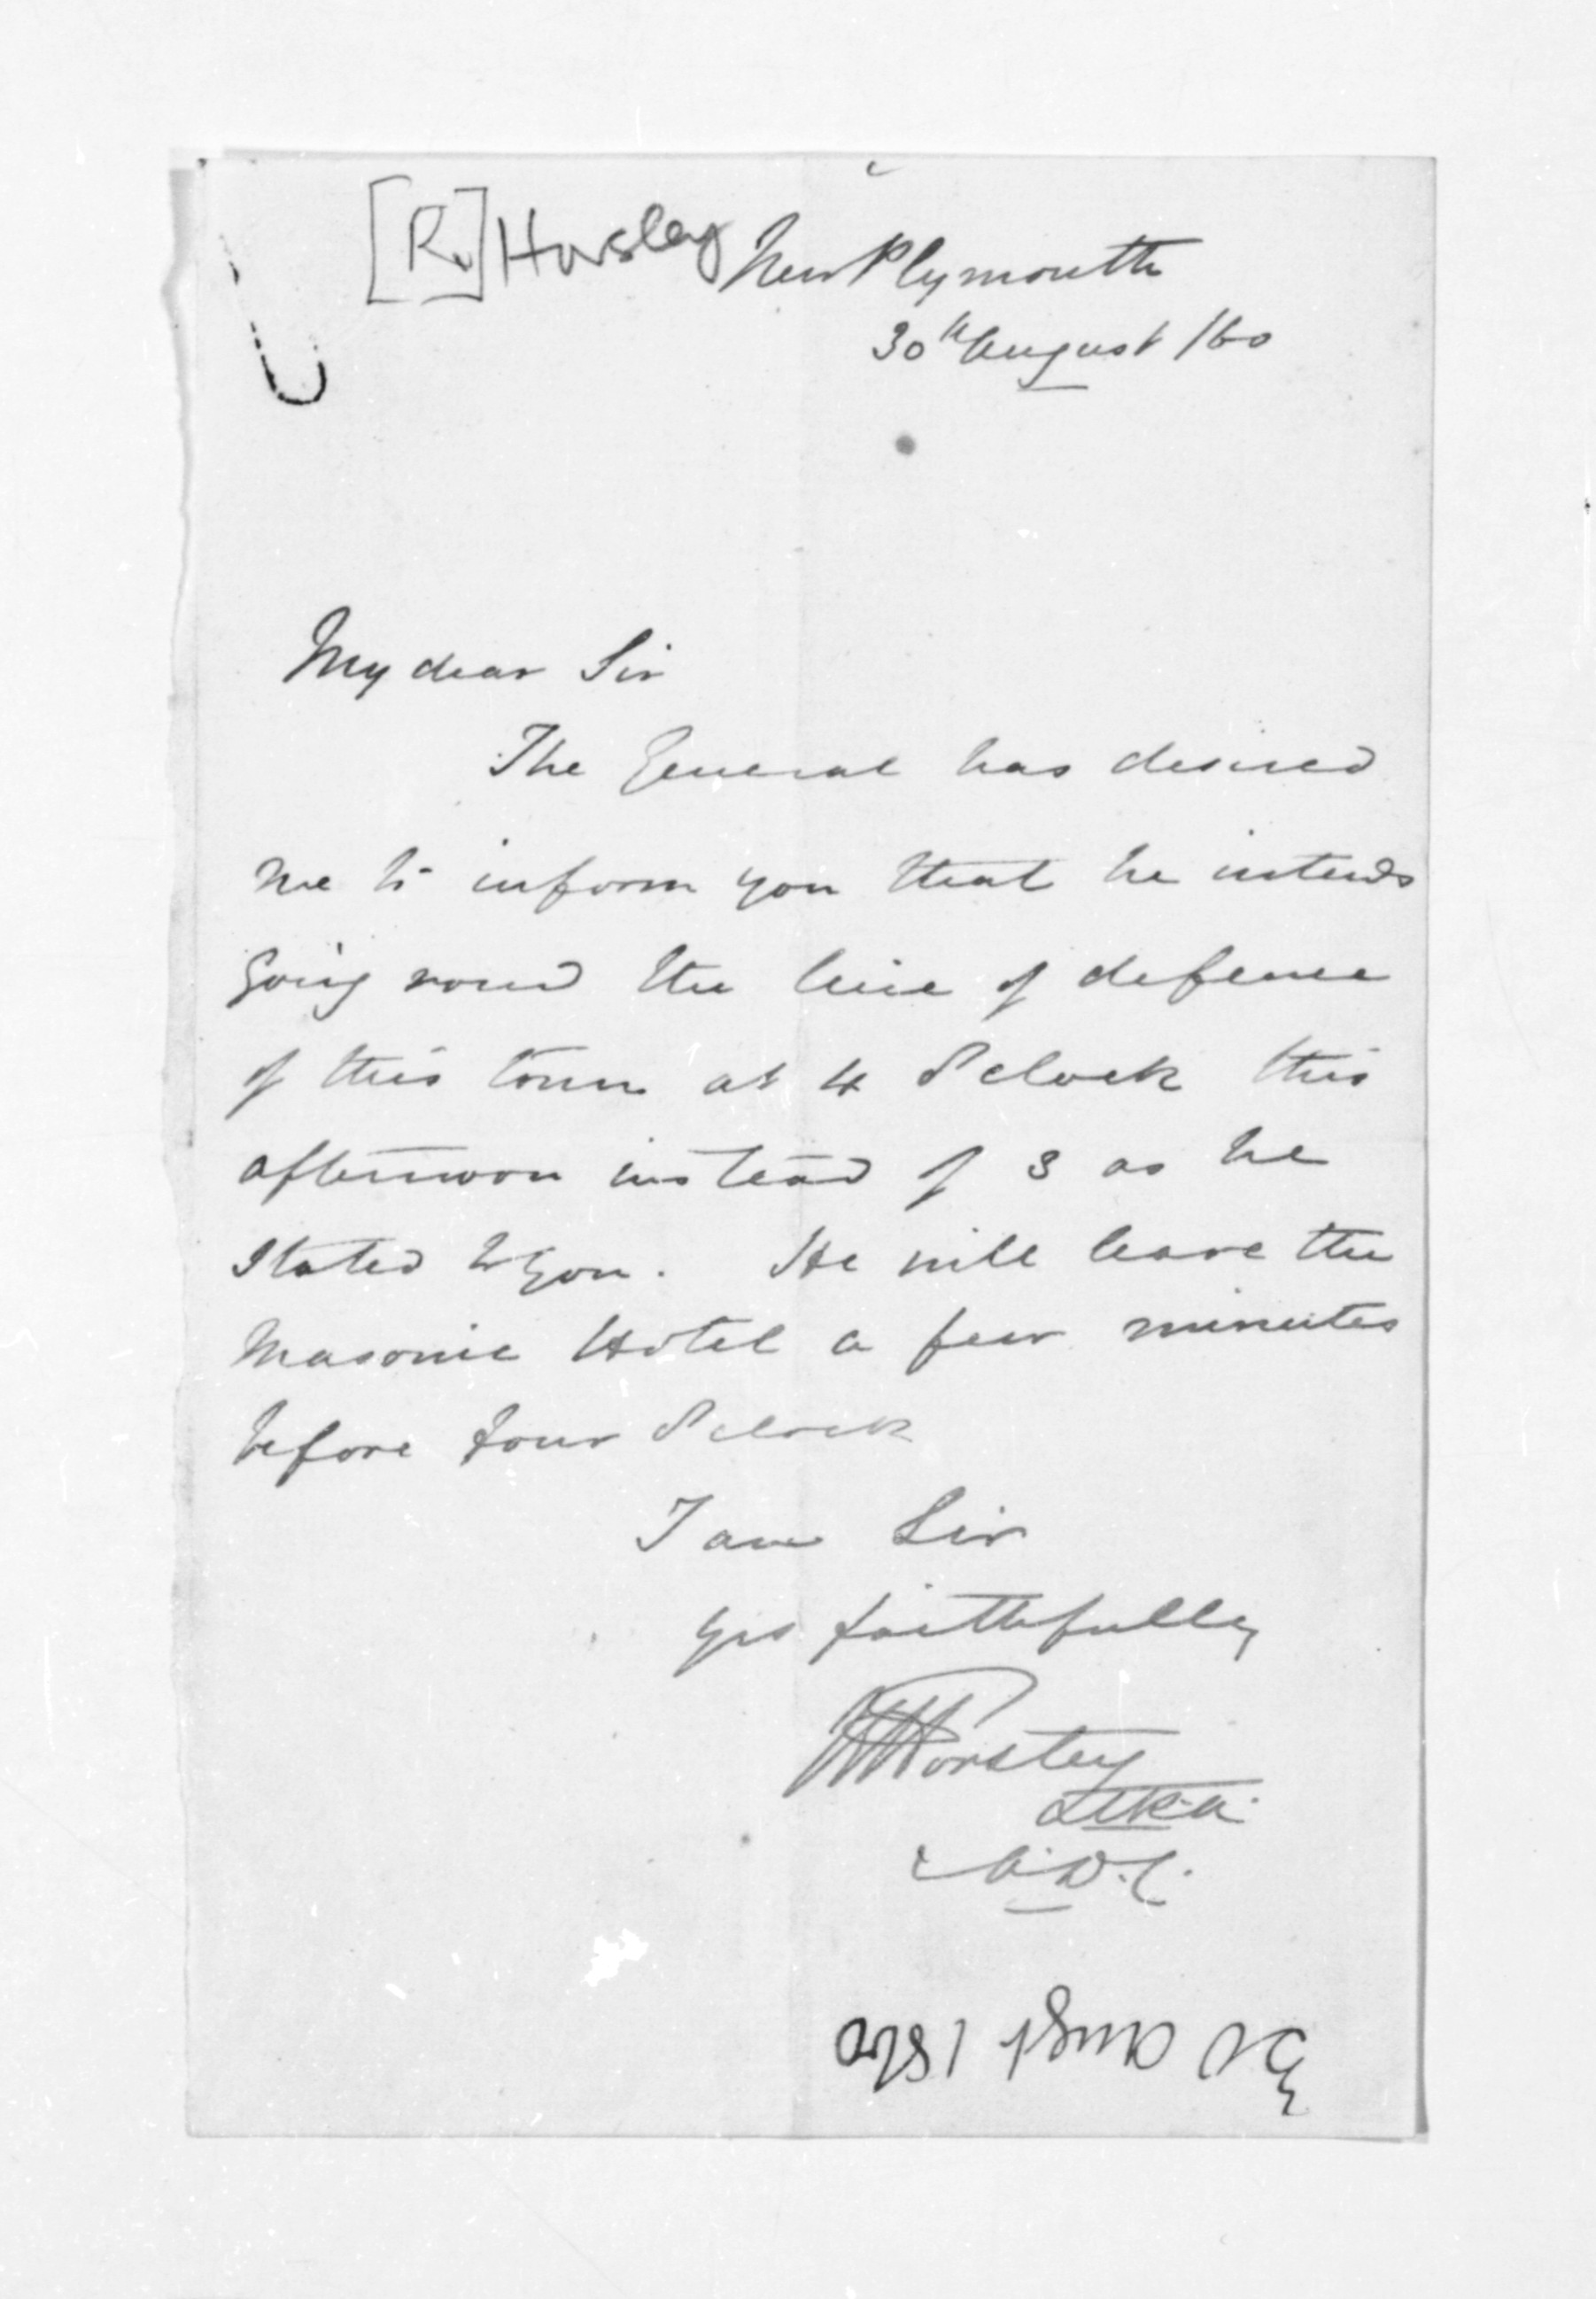 [R.] Horsley
New Plymouth
30th August /60
My dear Sir
The General has desired
me to inform you that he intends
going round the line of defence
of this town at 4 O'clock this
afternoon instead of 3 as he
stated to you. He will leave the
Masonic Hotel a few minutes
before four O'clock
I am Sir
yrs faithfully
Horsley
Lt R.A.
A.D.C.
30 Augt 1860